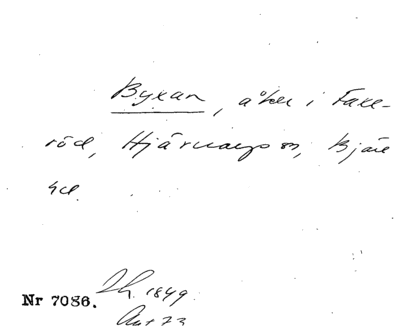 Byxan, åker i Faxe-
röd, Hjärnarps sn, Bjäre
hd.
Nr 7086. 1849